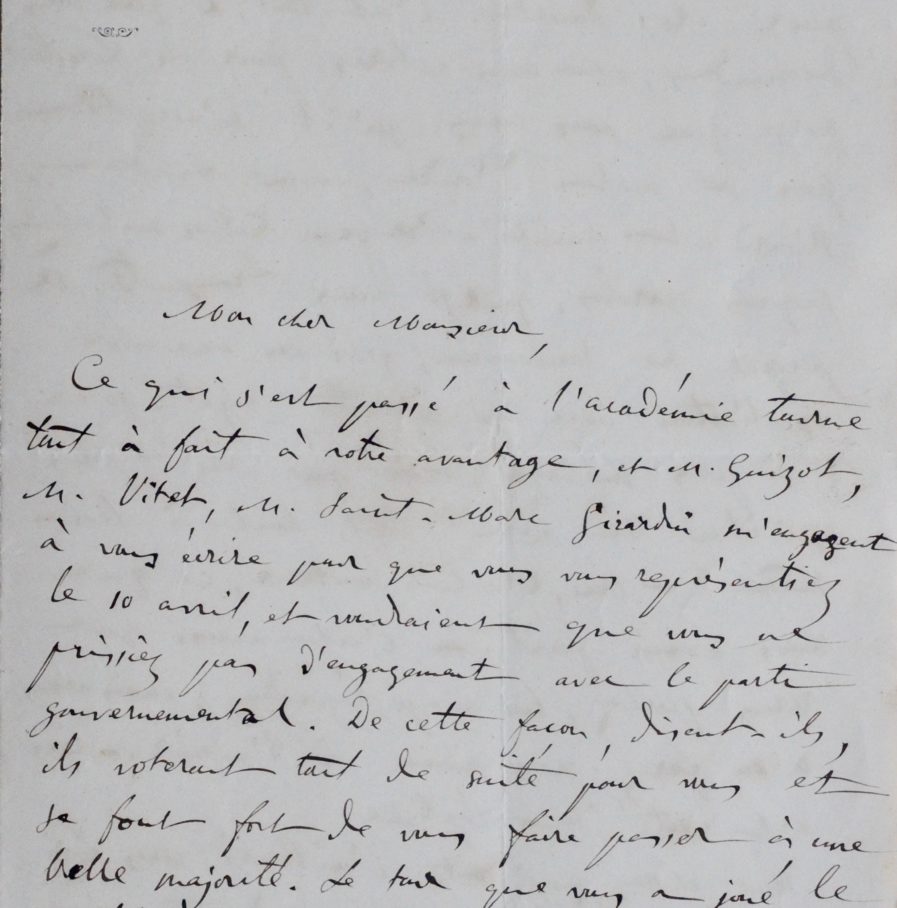 Mon cher Monsieur,
Ce qui s'est passé à l'académie tourne
tout à fait à votre avantage, et M. Guizot,
M. Vitet, M. Saint-Marc Girardin m'engagent
à vous écrire pour que vous vous représentiez
le 10 avril, et voudraient que vous ne
prissiez pas d'engagement avec le parti
gouvernemental. De cette façon, disent-ils,
ils voteront tout de suite pour vous et
se font fort de vous faire passer à une
belle majorité. Le tour que vous a joué le